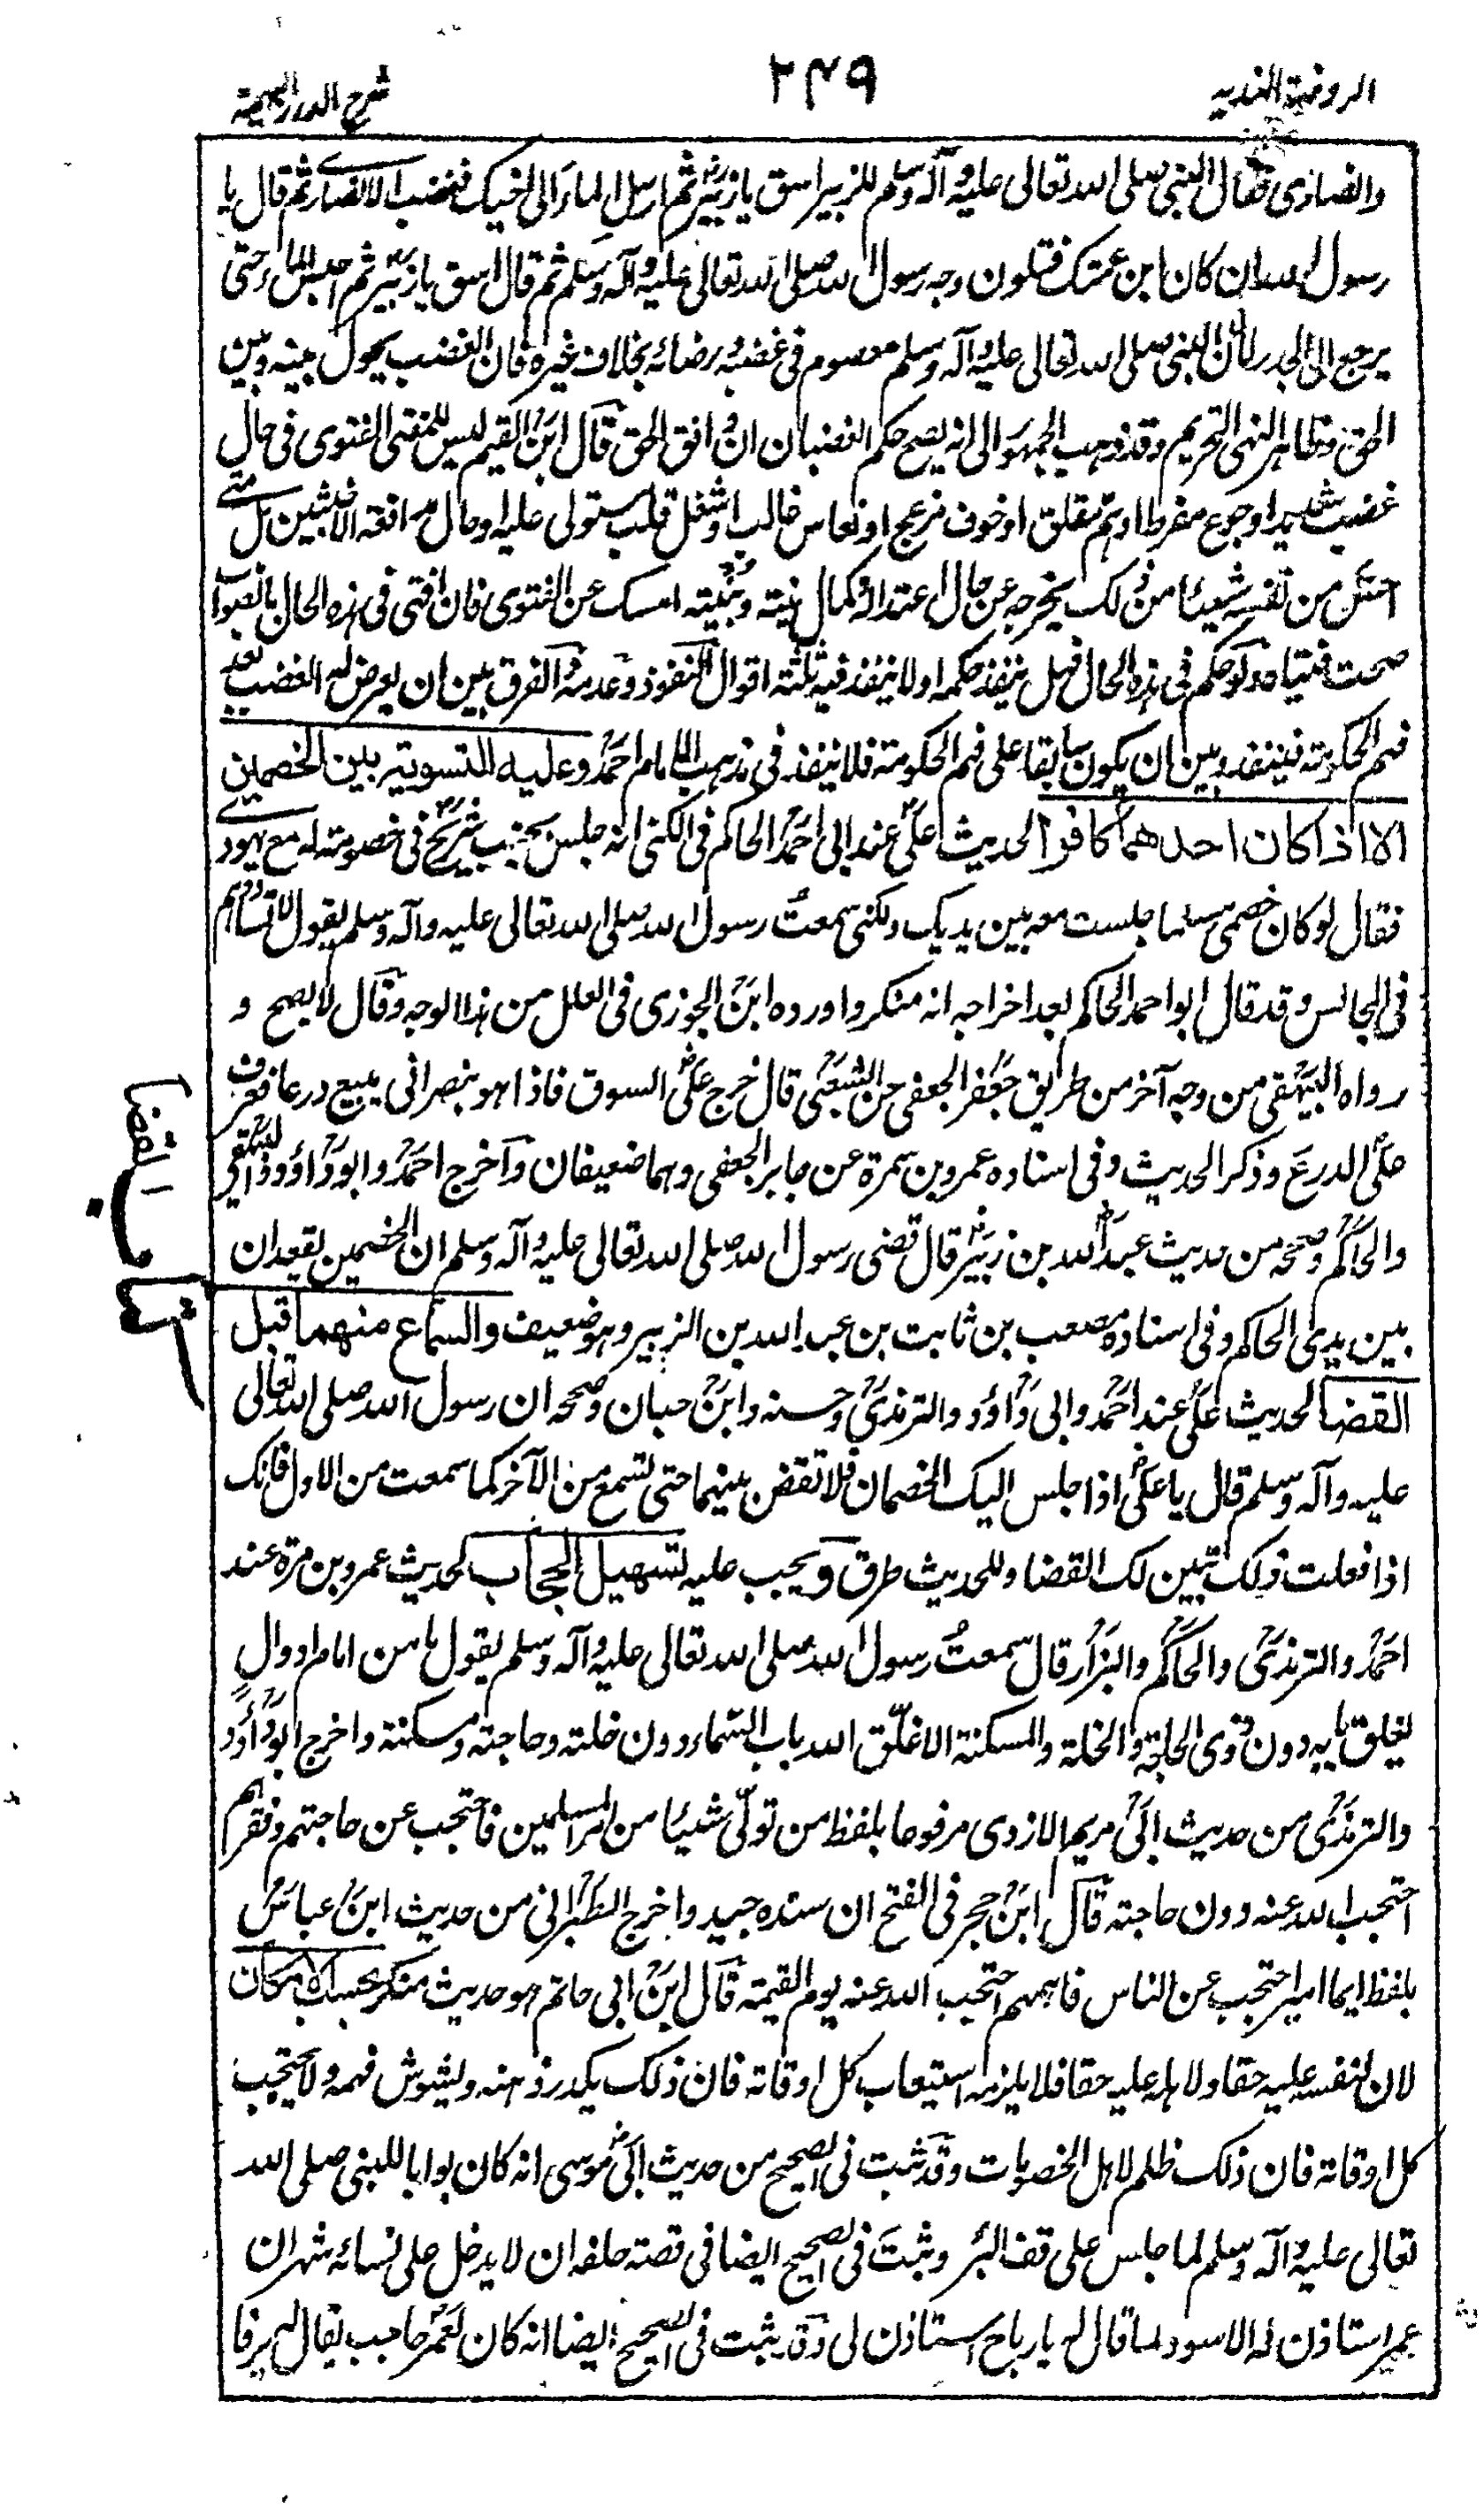 الروضة الندية
٢٤٩
شرح الدرر البهية
والضاري فقال النبي صلى الله تعالى عليه وآله وسلم للزبير اسق يا زبير ثم ارسل الماء الى اخيك فغضب الانصاري ثم قال يا
رسول الله ان كان ابن عمتك فتلون وجه رسول الله صلى الله تعالى عليه وآله وسلم ثم قال اسق يا زبير ثم احبس الماء حتى
يرجع الى الجدر لان النبي صلى الله تعالى عليه وآله وسلم معصوم في غضبه ورضائه بخلاف غيره فان الغضب يحول بينه وبين
الحق وظاهر النهي التحريم وقد ذهب الجمهور الى انه يصح حكم الغضبان ان وافق الحق قال ابن القيم ليس للمفتي الفتوى في حال
غضب شديد او جوع مفرط او هم مقلق او خوف مزعج او نعاس غالب او شغل قلب مستولى عليه او حال مدافعة الاخبثين بل متى
احس من نفسه شيئا من ذلك يخرجه عن حال اعتداله وكمال نيته وتثبته امسك عن الفتوى فان افتى في هذه الحال بالصواب
صحت فتياه ولو حكم في هذه الحال فهل ينفذ حكمه او لا ينفذ فيه ثلثة اقوال النفوذ وعدمه الفرق بين ان يعرض له الغضب بعد
فهم الحكومة فينفذ وبين ان يكون سابقا على فهم الحكومة فلا ينفذ في مذهب الامام احمد وعليه التسوية بين الخصمين
الا اذا كان احدهما كافرا لحديث علي عند ابي احمد الحاكم في الكنى انه جلس بجنب شريح في خصومة له مع يهودي
فقال لو كان خصمي مسلما جلست معه بين يديك ولكني سمعت رسول الله صلى الله تعالى عليه وآله وسلم يقول لا تساووهم
في المجالس وقد قال ابو احمد الحاكم بعد اخراجه انه منكر واورده ابن الجوزي في العلل من هذا الوجه وقال لا يصح و
رواه البيهقي من وجه آخر من طريق جعفر الجعفي عن الشعبي قال خرج علي السوق فاذا هو بنصراني يبيع درعا فعرف
علي الدرع وذكر الحديث وفي اسناده عمرو بن سمرة عن جابر الجعفي وهما ضعيفان وآخرج احمد وابوداؤد والبيهقي
والحاكم وصححه من حديث عبد الله بن زبير قال قضى رسول الله صلى الله تعالى عليه وآله وسلم ان الخصمين يقعدان
بين يدي الحاكم وفي اسناده مصعب بن ثابت بن عبد الله بن الزبير وهو ضعيف والسماع منهما قبل
القضا لحديث علي عند احمد وابي داؤد والترمذي وحسنه وابن حبان وصححه ان رسول الله صلى الله تعالى
عليه وآله وسلم قال يا علي اذا جلس اليك الخصمان فلا تقض بينهما حتى تسمع من الآخر كما سمعت من الاول فانك
اذا فعلت ذلك تبين لك القضا وللحديث طرق ويجب عليه تسهيل الحجاب لحديث عمرو بن مرة عند
احمد والترمذي والحاكم والبزار قال سمعت رسول الله صلى الله تعالى عليه وآله وسلم يقول ما من امام او وال
يغلق بابه دون ذوي الحاجة والخلة والمسكنة الا اغلق الله باب السماء دون خلته وحاجته ومسكنته واخرج ابوداؤد
والترمذي من حديث ابي مريم الازدي مرفوعا بلفظ من تولى شيئا من امر المسلمين فاحتجب عن حاجتهم وفقرهم
احتجب الله عنه دون حاجته قال ابن حجر في الفتح ان سنده جيد واخرج الطبراني من حديث ابن عباس
بلفظ ايما امير احتجب عن الناس فاهمهم احتجب الله عنه يوم القيمة قال ابن ابي حاتم هو حديث منكر بحسب الامكان
لان لنفسه عليه حقا ولاهله عليه حقا فلا يلزمه استيعاب كل اوقاته فان ذلك يكدر ذهنه ويشوش فهمه ولا يحتجب
كل اوقاته فان ذلك ظلم لاهل الخصومات وقد ثبت في الصحيح من حديث ابي موسى انه كان بوابا للنبي صلى الله
تعالى عليه وآله وسلم لما جلس على قف البئر وثبت في الصحيح ايضا في قصة حلفه ان لا يدخل على نسائه شهرا ان
عمر استاذن له الاسود لما قال له يا رباح استاذن لي وقد ثبت في الصحيح ايضا انه كان لعمر حاجب يقال له يرفا